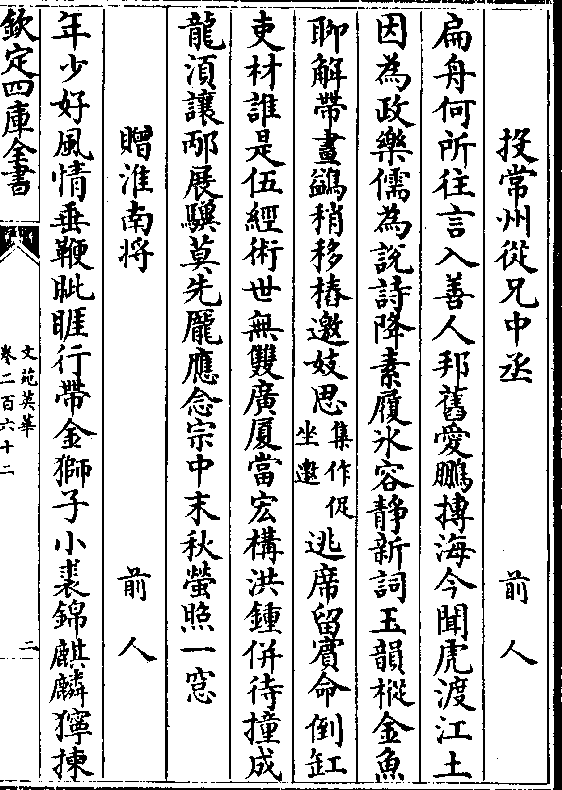 投常州從兄中丞 前人
扁舟何所往言入善人邦舊愛鵬摶海今聞虎渡江土
因為政樂儒為說詩降素履氷容靜新詞玉韻樅金魚
聊解帶畫鷁稍移樁邀妓思集作促坐邀逃席留賓命倒缸
吏材誰是伍經術世無雙廣厦當宏構洪鍾併待撞成
龍湏讓邴展驥莫先龎應念宗中末秋螢照一窓
贈淮南将 前人
年少好風情垂鞭眦睚行帶金獅子小裘錦麒麟獰揀
欽定四庫全書
文苑英華
卷二百六十二
二